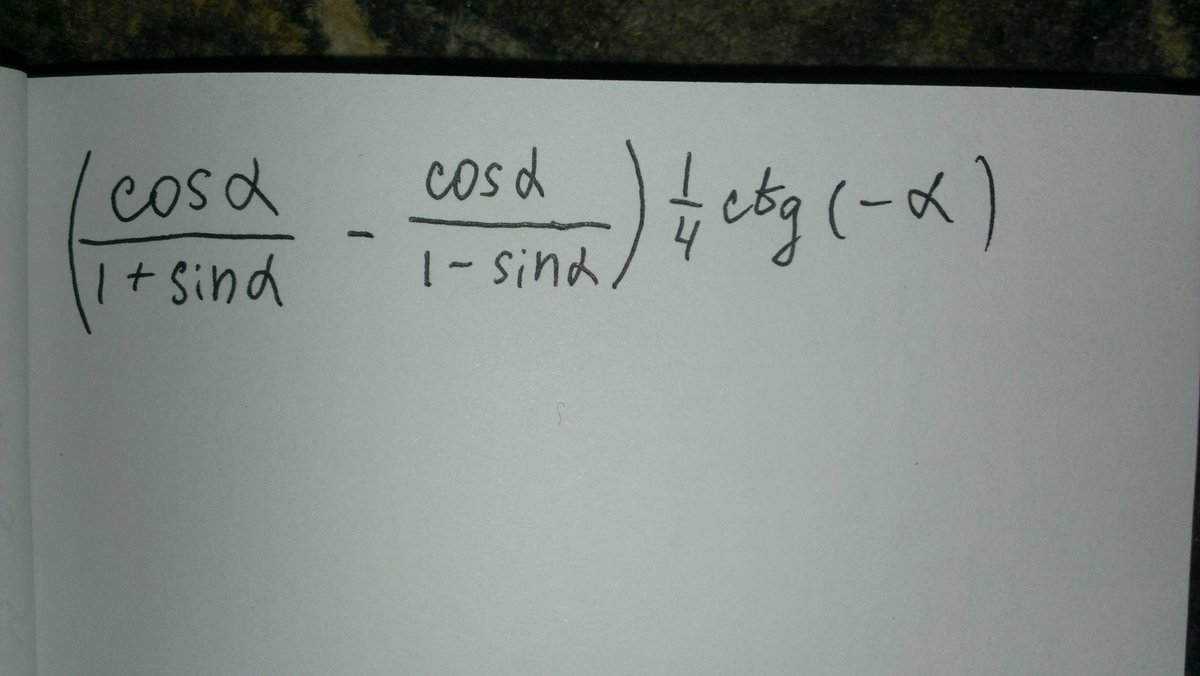 (cosα/(1+sinα) - cosα/(1-sinα)) 1/4 ctg(-α)